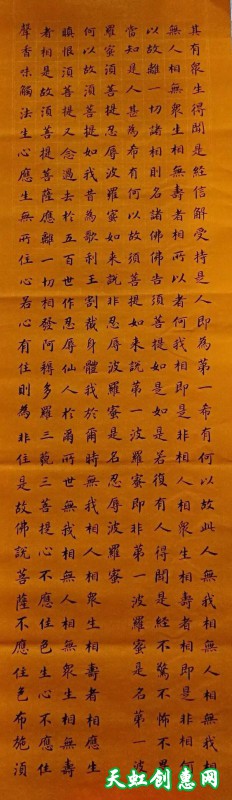 其有眾生得聞是經信解受持是人即為第一希有何以故此人無我相無人相無我相
無人相無眾生相無壽者相所以者何我相即是非相人相眾生相壽者相即是非相何
以故離一切諸相則名諸佛佛告須菩提如是如是若復有人得聞是經不驚不怖不畏
當知是人甚為希有何以故須菩提如來說第一波羅蜜即非第一波羅蜜是名第一波
羅蜜須菩提忍辱波羅蜜如來說非忍辱波羅蜜是名忍辱波羅蜜
何以故須菩提如我昔為歌利王割截身體我於爾時無我相人相眾生相壽者相應生
瞋恨須菩提又念過去於五百世作忍辱仙人於爾所世無我相無人相無眾生相無壽
者相是故須菩提菩薩應離一切相發阿耨多羅三藐三菩提心不應住色生心不應住
聲香味觸法生心應生無所住心若心有住則為非住是故佛說菩薩不應住色布施須
天虹创惠网